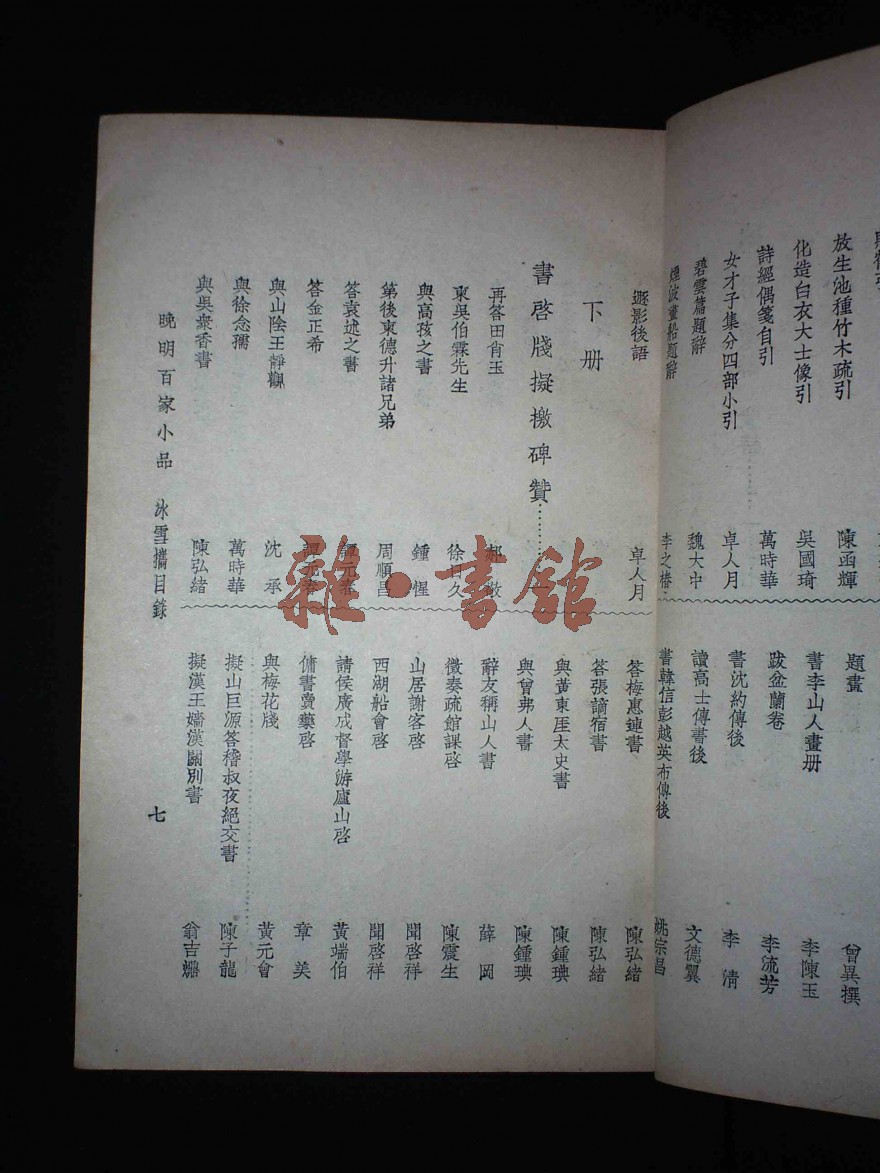 放生池種竹木疏引 陳函輝
化造白衣大士像引 吳國琦
詩經偶箋自引 萬時華
女才子集分四部小引 卓人月
碧雲篇題辭 魏大中
煙波畫船題辭 李之椿
題畫 曾異撰
書李山人畫册 李陳玉
跋盆蘭卷 李流芳
書沈約傳後 李清
讀高士傳書後 文德翼
書韓信彭越英布傳後 姚宗昌
遯影後語 卓人月
下册
書啓牋擬檄碑贊
再答田肖玉 郝敬
東吳伯霖先生 徐日久
與高孩之書 鍾惺
第後柬德升諸兄弟 周順昌
答袁述之書 譚元春
答金正希 譚元春
與山陰王靜觀 沈承
與徐念孺 萬時華
與吳衆香書 陳弘緒
答梅惠連書 陳弘緒
答張謫宿書 陳弘緒
與黃東厓太史書 陳鍾琠
與曾弗人書 陳鍾琠
辭友稱山人書 薛岡
徵奏疏館課啓 陳震生
山居謝客啓 聞啓祥
西湖船會啓 聞啓祥
請侯廣成督學游廬山啓 黃端伯
傭書賣藥啓 章美
與梅花牋 黃元會
擬山巨源答稽叔夜絕交書 陳子龍
擬漢王嬙漢闕別書 翁吉
晚明百家小品 冰雪攜目錄
七
雜·書館